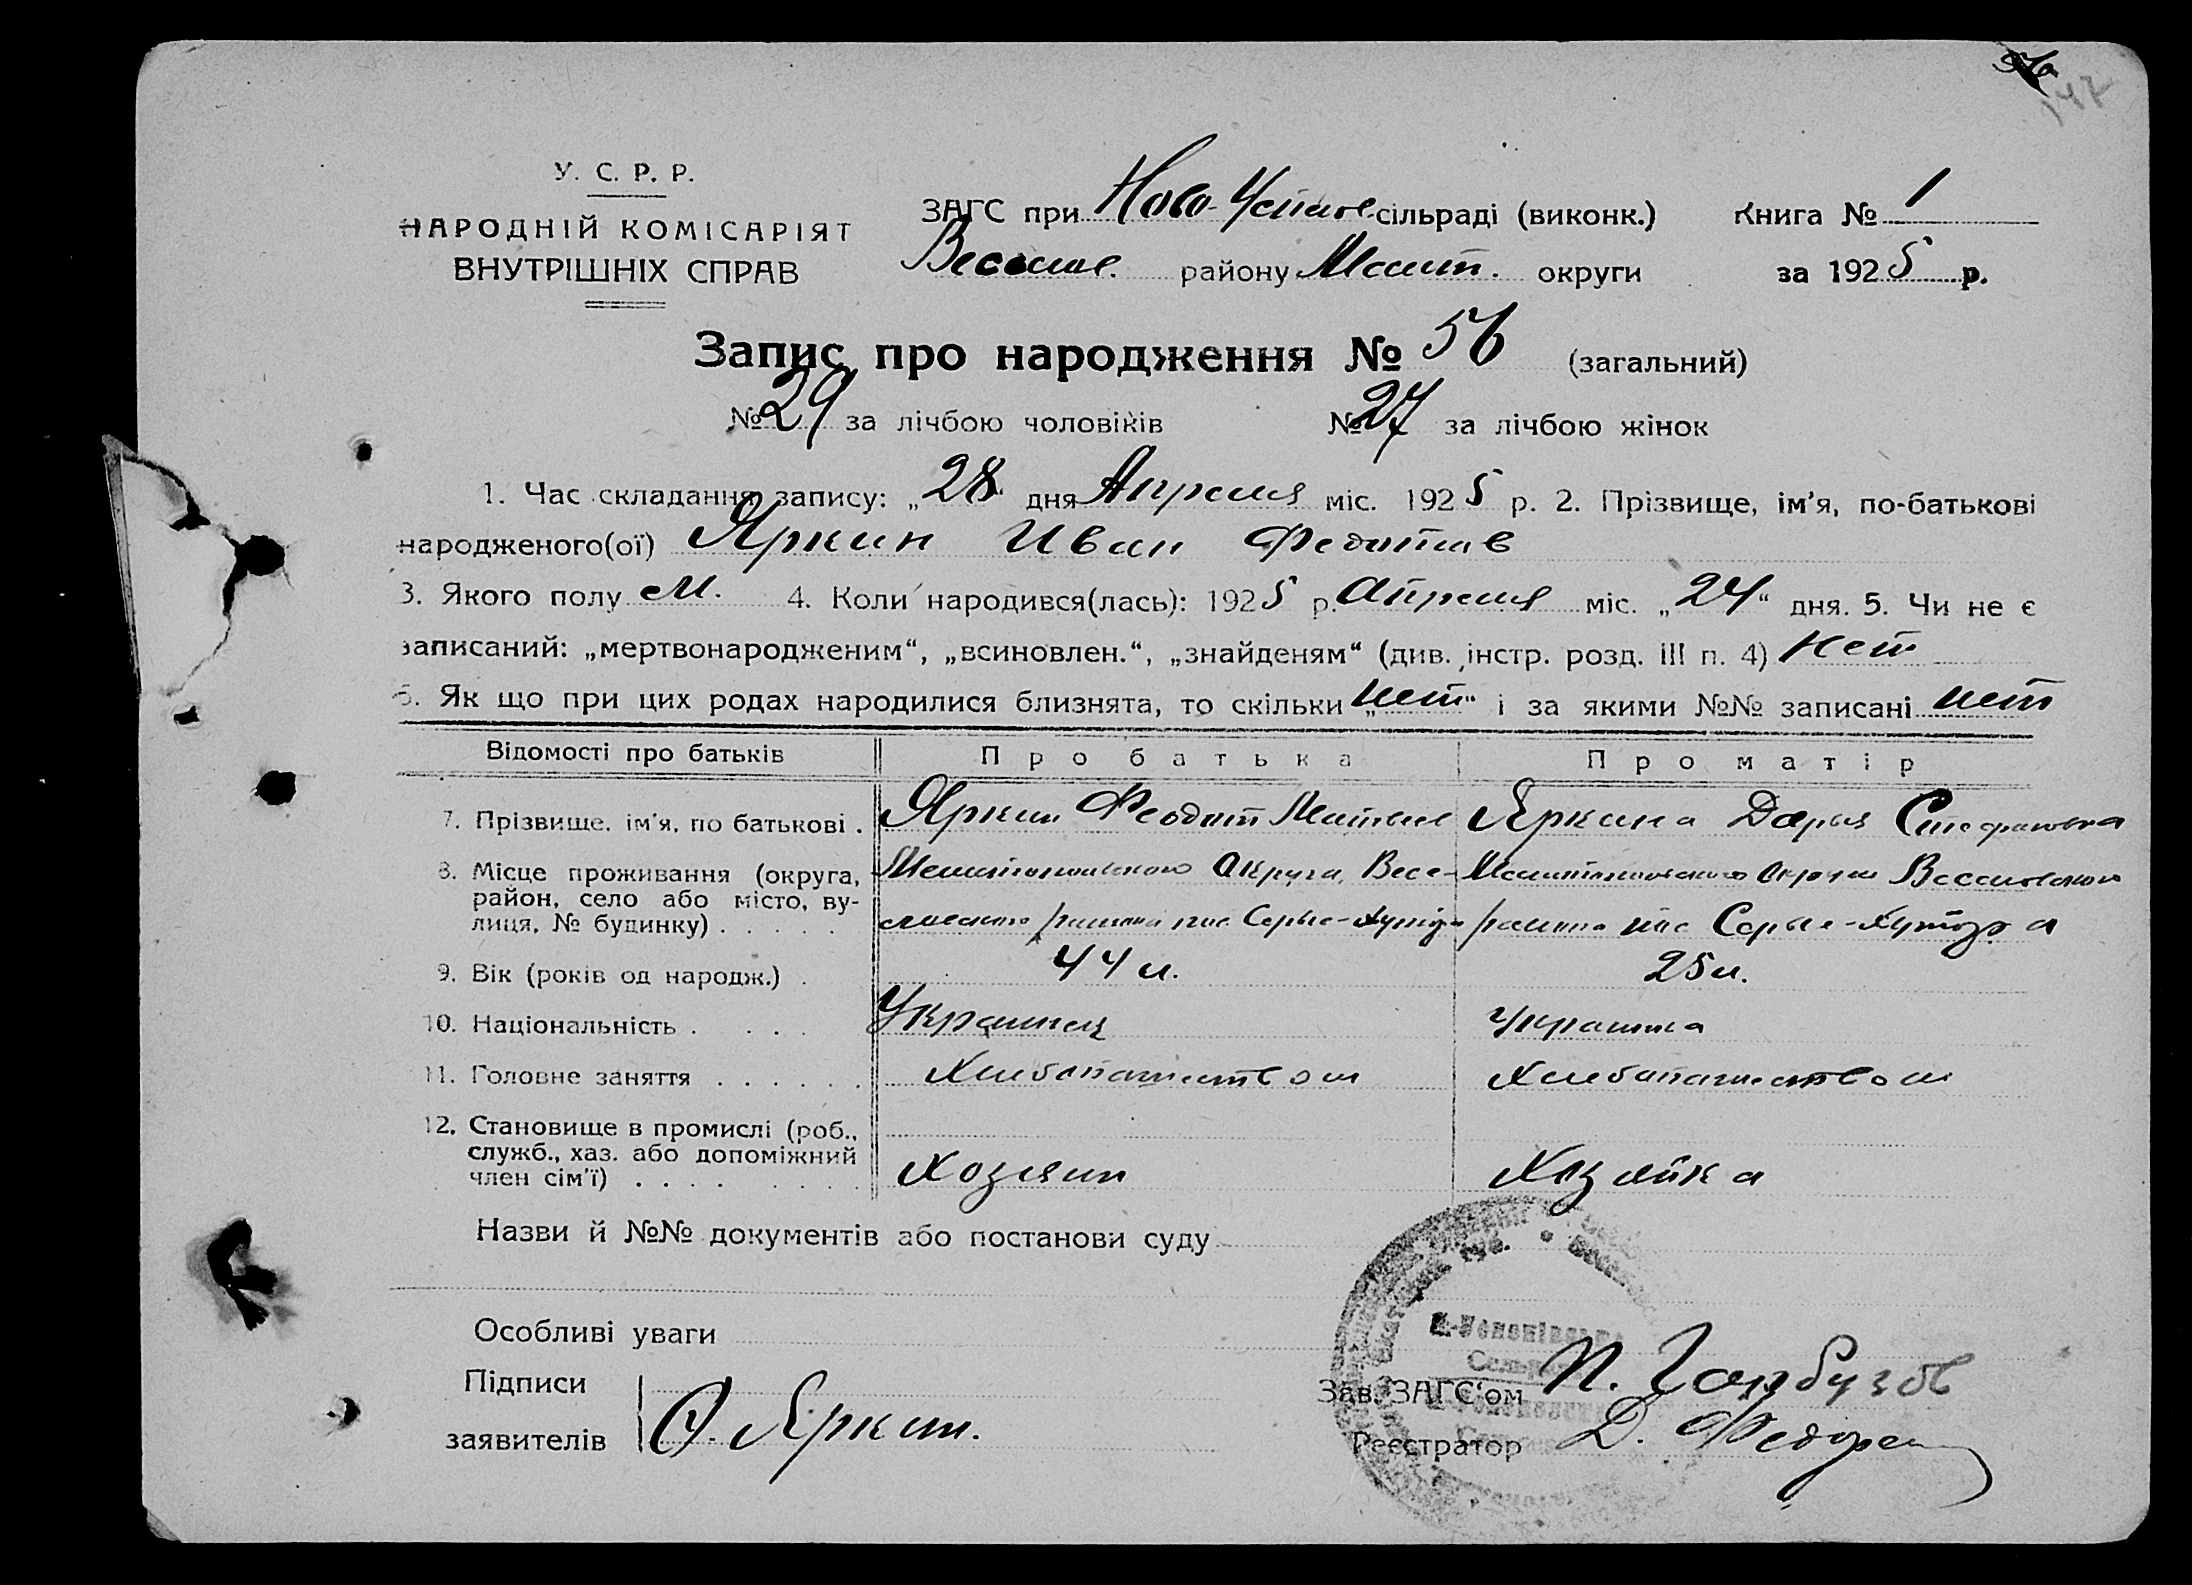 56
147
У. С. Р. Р.
НАРОДНІЙ КОМІСАРІЯТ
ВНУТРІШНІХ СПРАВ
ЗАГС при Ново-Успен. сільраді (виконк.) Книга № 1
Весел. району Мелит. округи за 1925 р.
Запис про народження № 56 (загальний)
№ 29 за лічбою чоловіків № 27 за лічбою жінок
1. Час складання запису: „28“ дня Апреля міс. 1925 р. 2. Прізвище, ім'я, по-батькові
народженого(ої) Яркин Иван Федотов
3. Якого полу М. 4. Коли народився(лась): 1925 р. Апреля міс. „24“ дня. 5. Чи не є
записаний: „мертвонародженим“, „всиновлен.“, „знайденям“ (див. інстр. розд. III п. 4) нет
6. Як що при цих родах народилися близнята, то скільки „нет“ і за якими №№ записані нет
Відомості про батьків Про батька Про матір
7. Прізвище, ім'я, по батькові . Яркин Феодот Матвее Яркина Дарья Стефановна
8. Місце проживання (округа, Мелитопольского Округа, Весе- Мелитопольского Округа Веселовского
район, село або місто, ву-
лиця, № будинку) . . . . . ловского района пос Серые-Хутора района пос Серые-Хутора
9. Вік (років од народж.) . 44 л. 25 л.
10. Національність . . . . Украинец Украинка
11. Головне заняття . . . . . . Хлебопашеством Хлебопашеством
12. Становище в промислі (роб.,
служб., хаз. або допоміжний
член сім'ї) . . . . . . . . Хозяин Хозяйка
Назви й №№ документів або постанови суду
Особливі уваги
Підписи
заявителів Ф. Яркин.
Зав. ЗАГС'ом П. Гарбузов
Реєстратор Д. Федорен